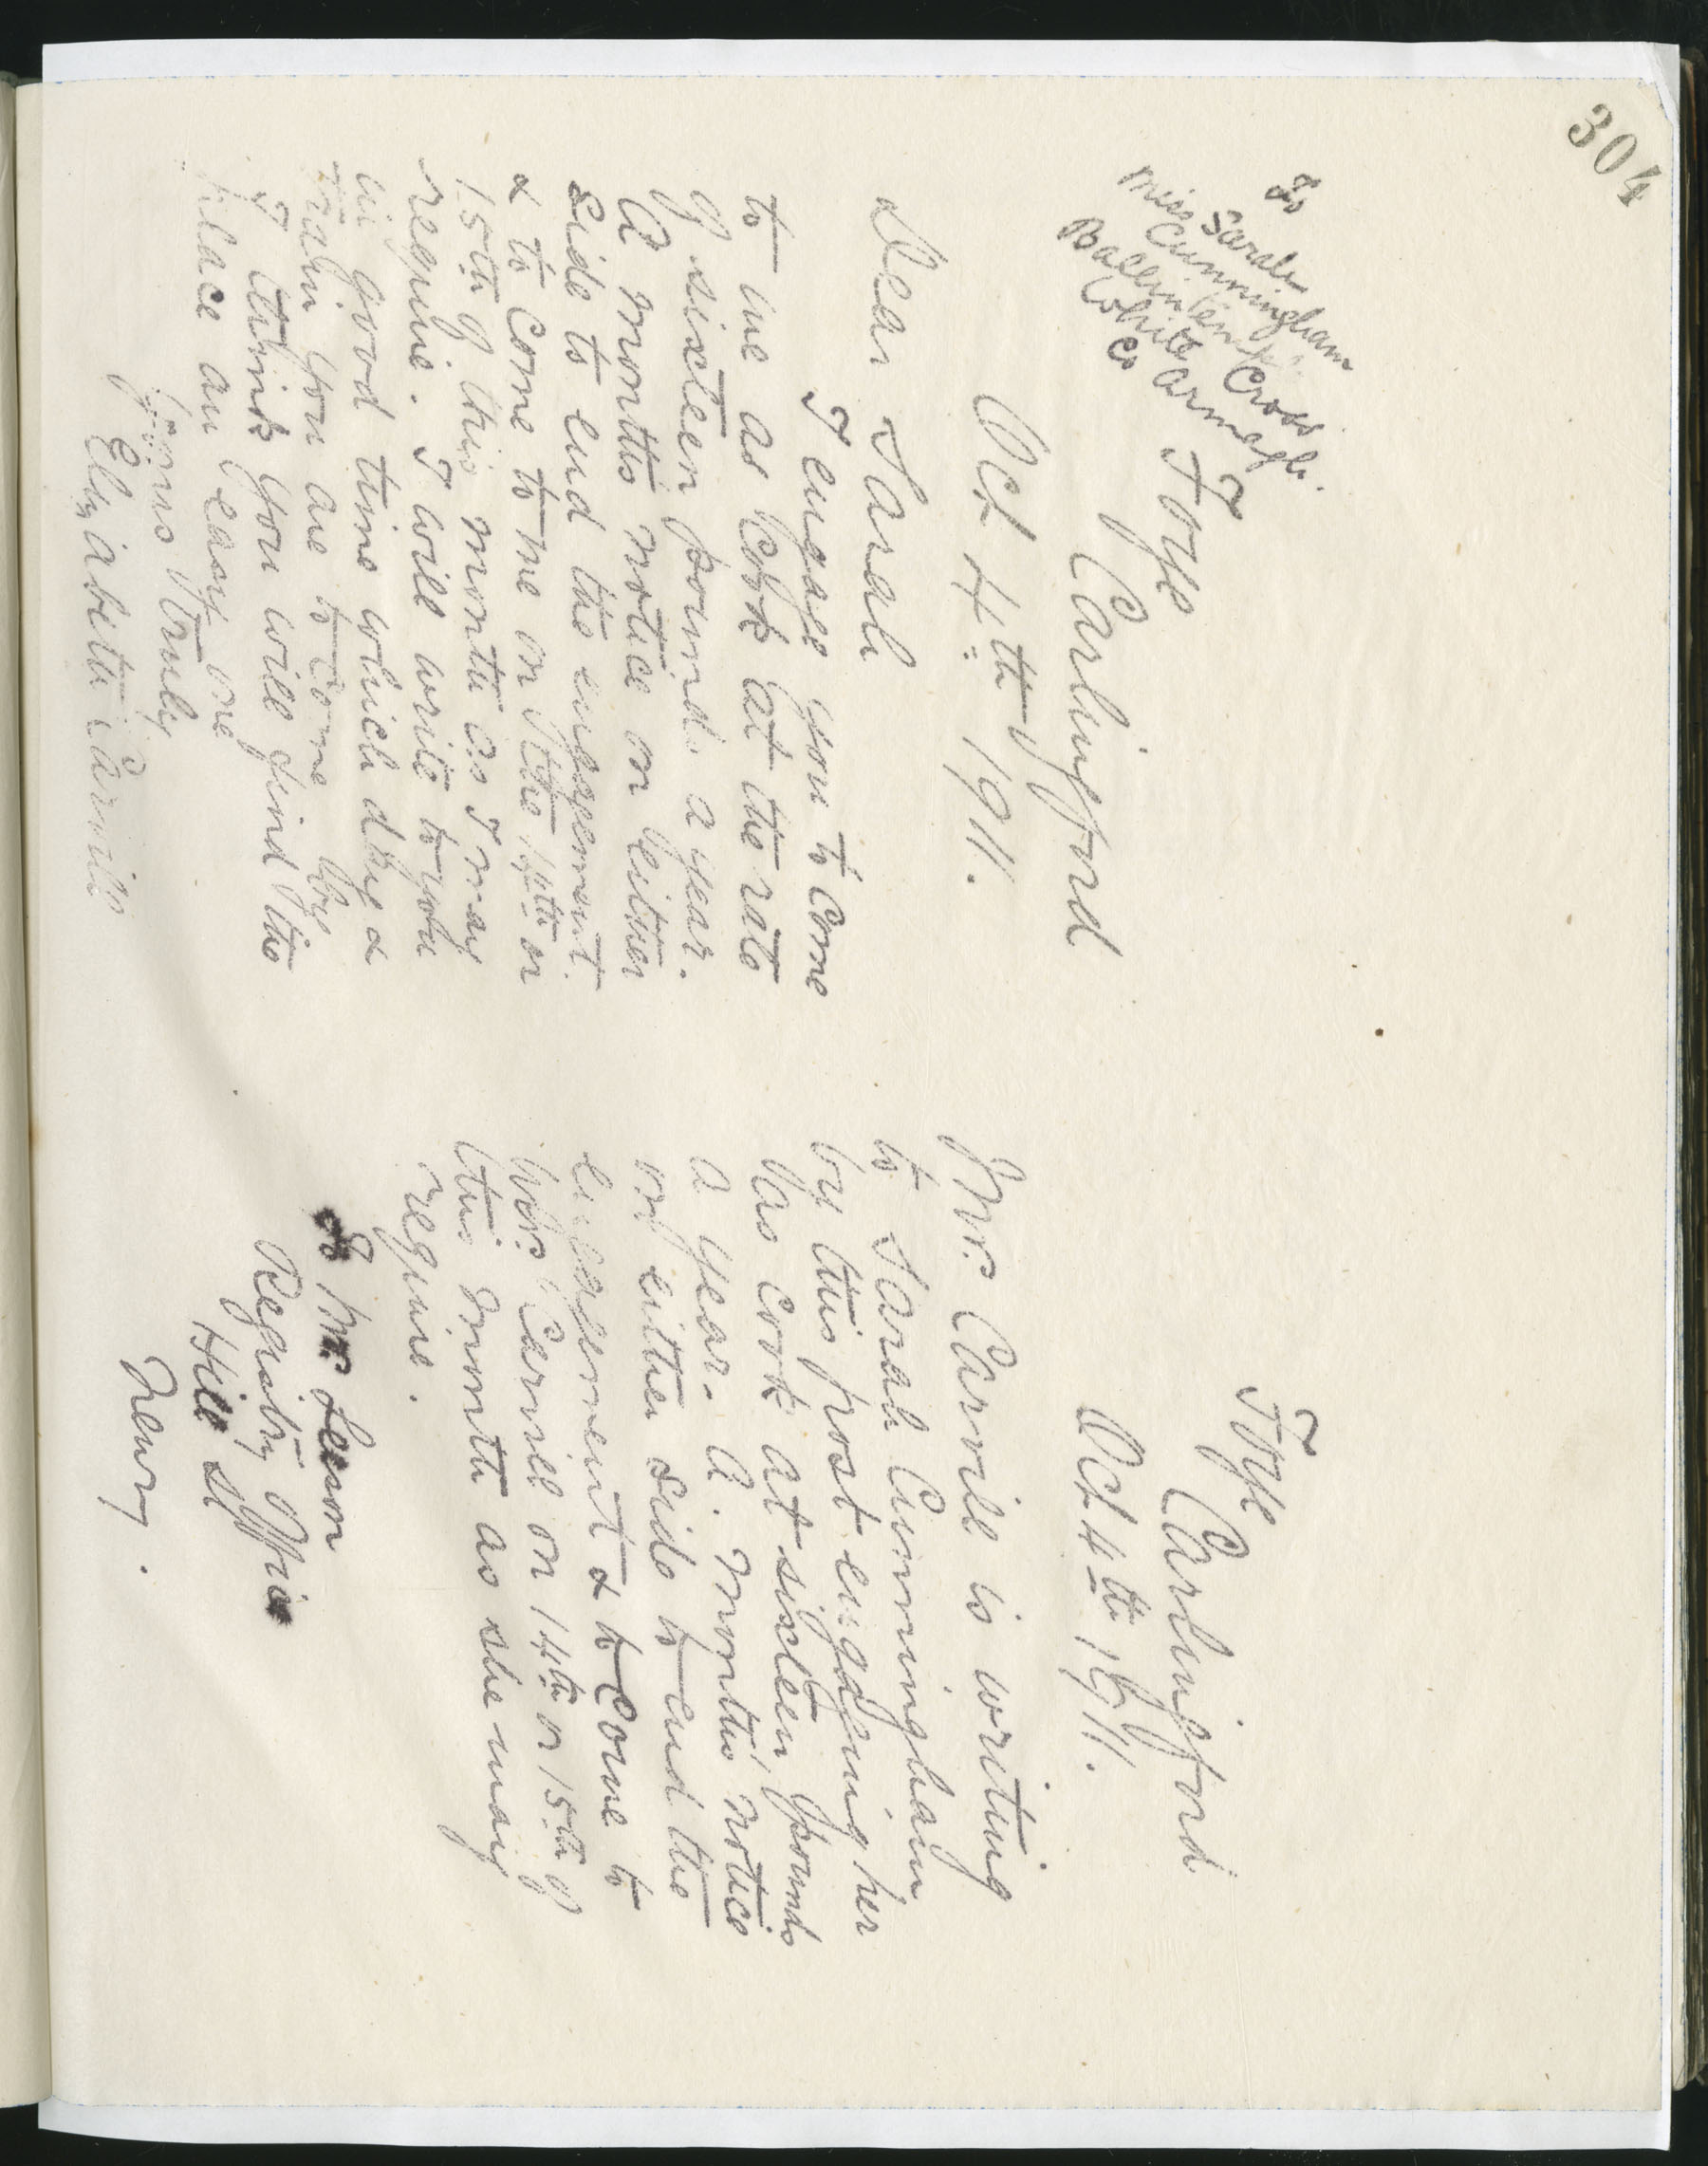 304
To
Sarah
Miss Cunningham
Ballintemple
White Cross
Co Armagh.
Foyle
Carlingford
Oct 4th 1911.
Dear Sarah
I engage you to come
to me as Cook at the rate
of sixteen pounds a year.
A months notice on either
side to end the engagement.
& to Come to me on the 14th or
15th of this month as I may
require. I will write to you
in good time which day &
train you are to come by
I think you will find the
place an easy one
Yours truly
Elizabeth Carvill
Foyle
Carlingford
Oct 4th 1911.
Mrs. Carvill is writing
to Sarah Cunningham
by this post engaging her
as cook at sixteen pounds
a year. A. months' notice
on either side to end the
engagement & to Come to
Mrs. Carvill on 14th or 15th of
this month as she may
require.
To Mrs
Registry Office
Hill St
Newry.